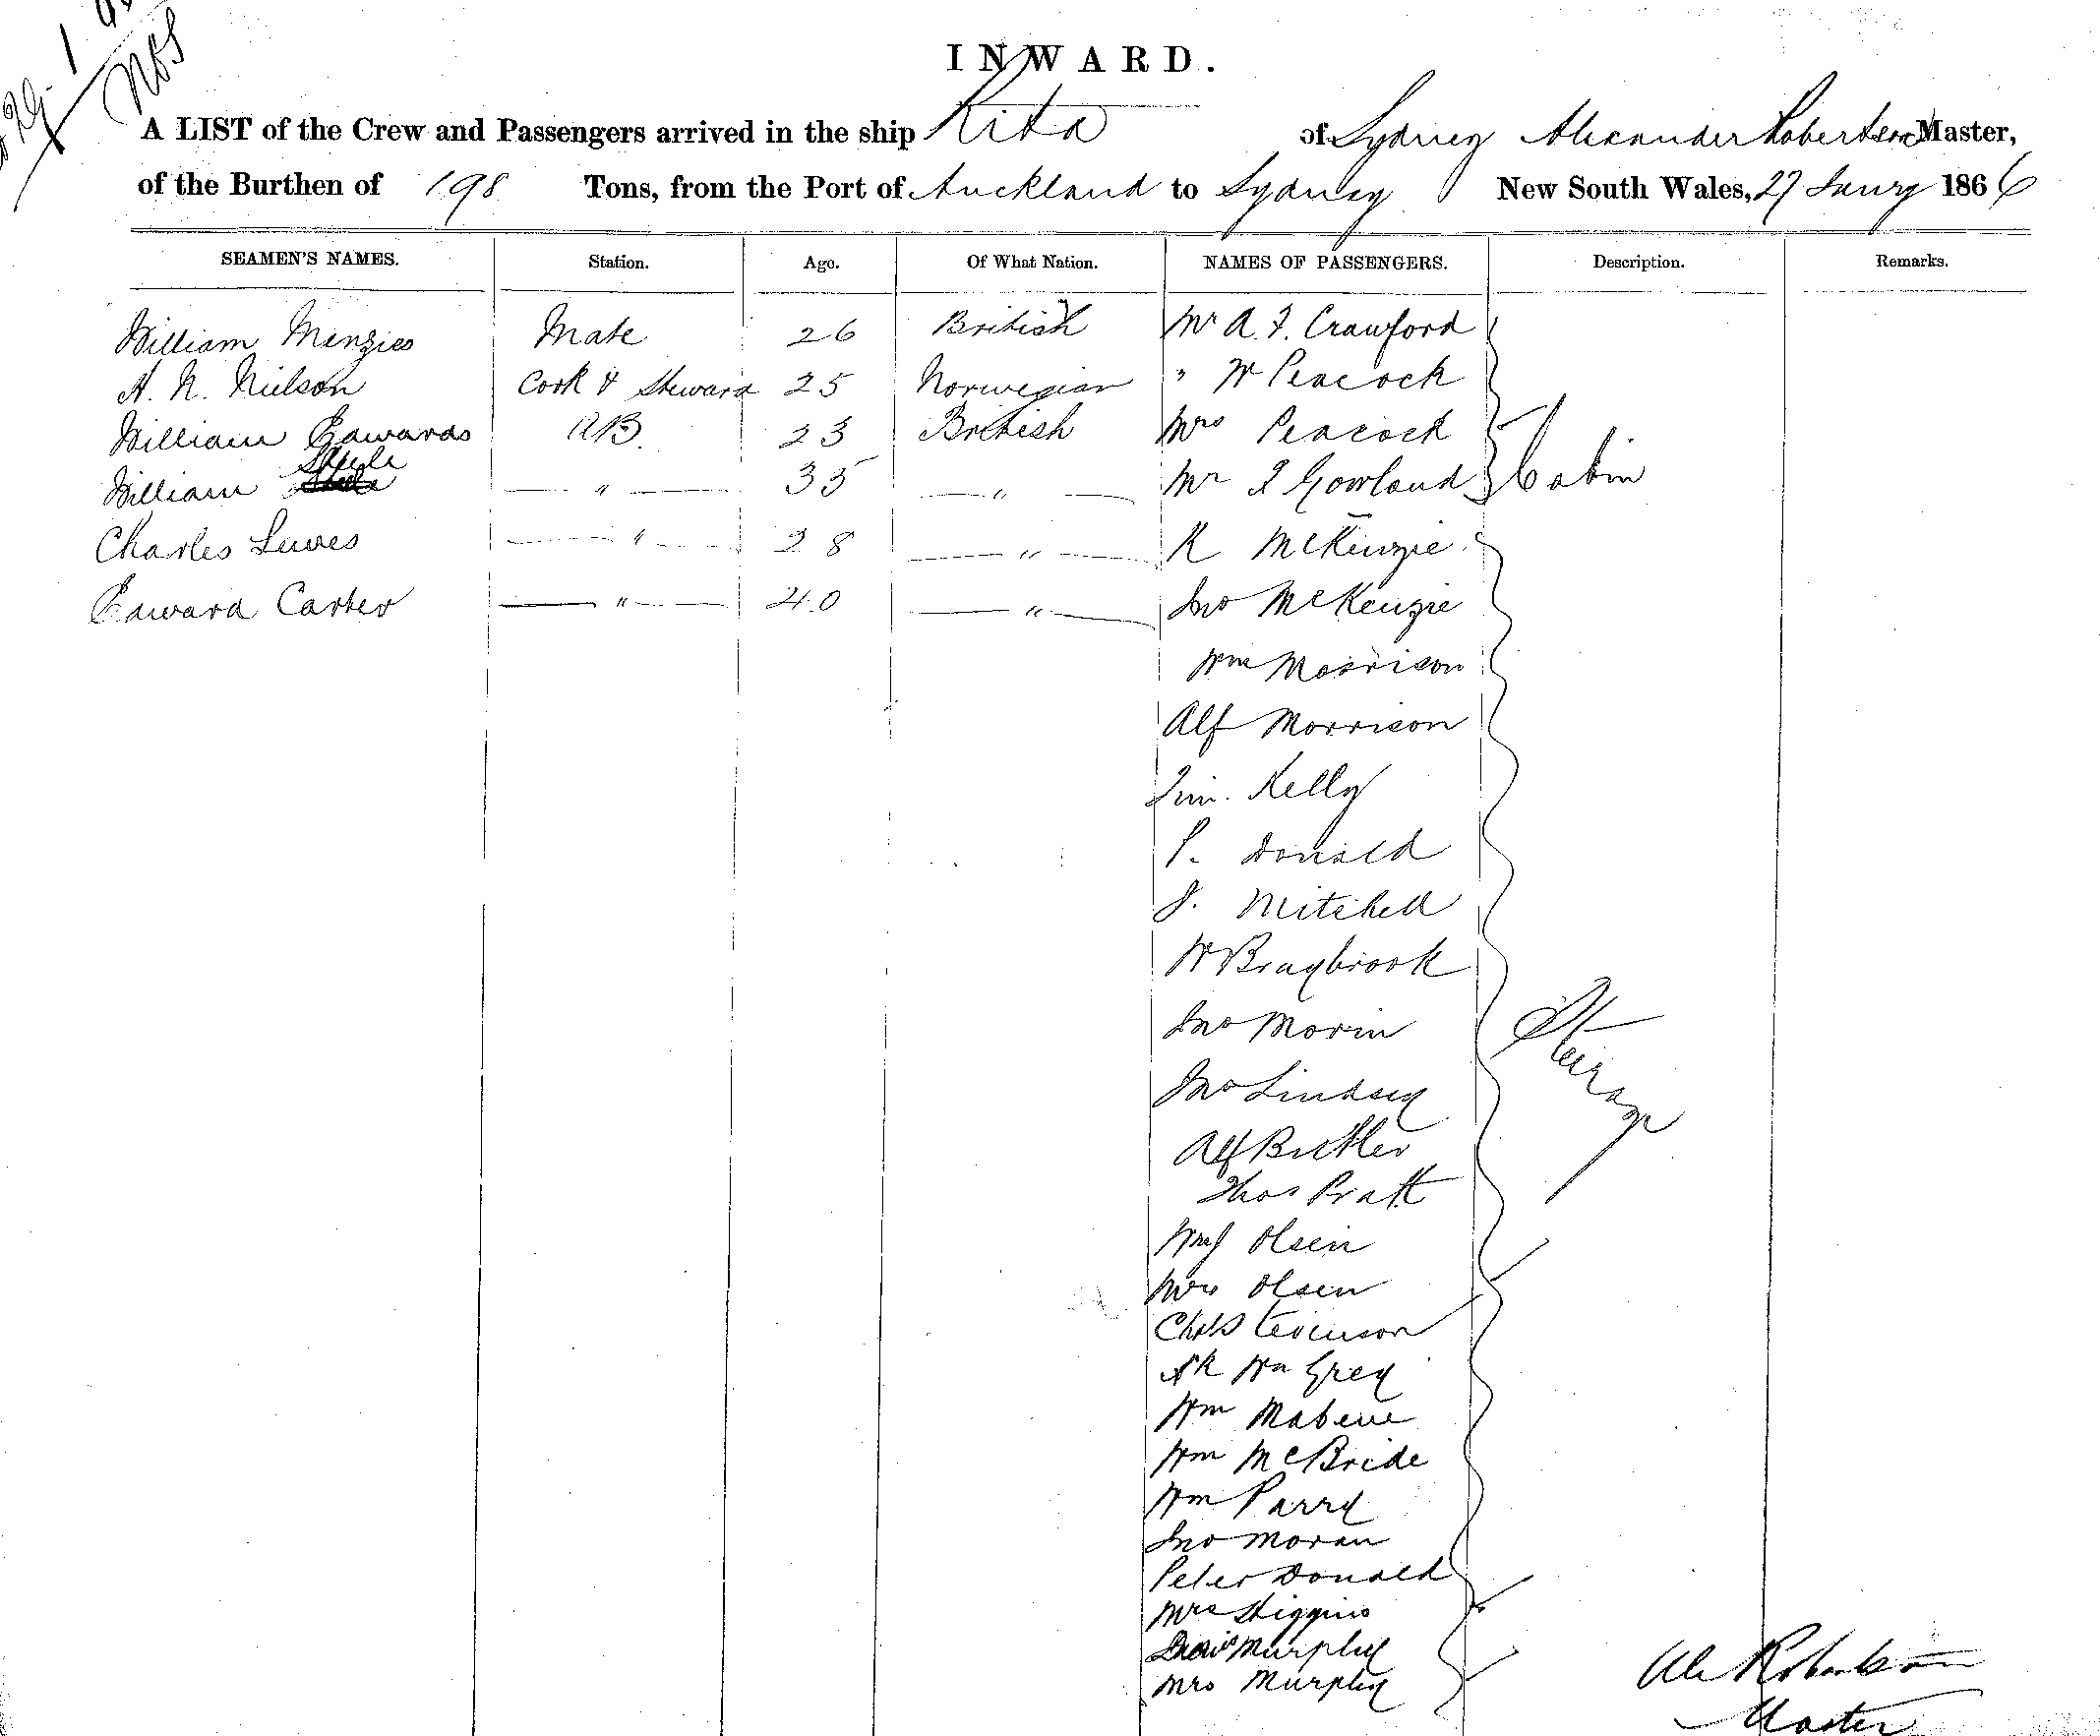 INWARD.
A LIST of the Crew and Passengers arrived in the ship Rita of Sydney Alexander Robertson Master,
of the Burthen of 198 Tons, from the Port of Auckland to Sydney New South Wales, 27 Jany 1866
SEAMEN'S NAMES. Station. Age. Of What Nation. NAMES OF PASSENGERS. Description. Remarks.
William Menzies Mate 26 British Mr A. F. Crawford
A. N. Nielson Cook & Steward 25 Norwegian " W Peacock
William Edwards AB. 23 British Mrs Peacock
William Steele " 35 " Mr Gowland Cabin
Charles " 28 " R McKenzie
Edward Carter " 40 " Jno McKenzie
Wm Morrison
Alf Morrison
Tim. Kelly
P. Donald
J. Mitchell
W Braybrook
Jno Morin
Jno Lindsey
Steerage
Alf Butler
Thos Pratt
Olsen
Mrs Olsen
Chas Stevenson
Wm Grey
Wm Mabene
Wm McBride
Wm Parry
Jno Moran
Peter Donald
Mrs Higgins
Murphy
Mrs Murphy
Alex Robertson
Master